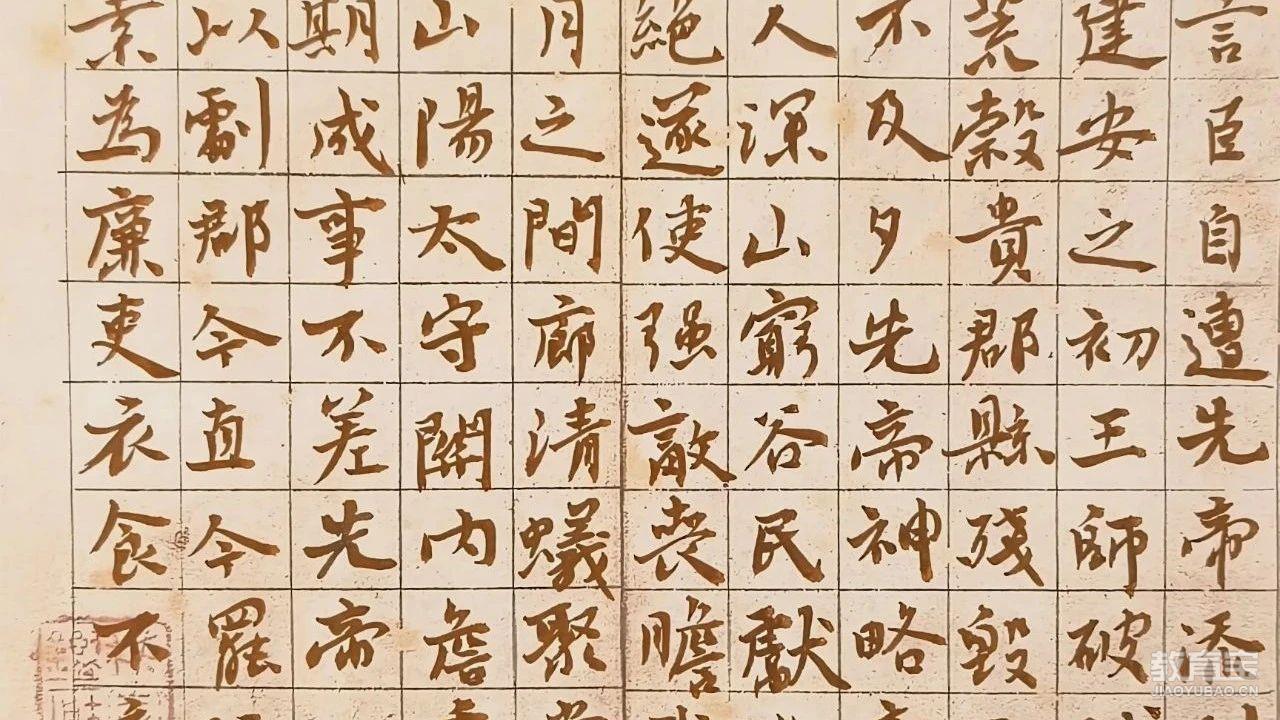 言臣自遭先帝忝
建安之初王師破
荒穀貴郡縣殘毀
不及夕先帝神略
人深山窮谷民獻
絕遂使强敵喪膽
月之間廊清蟻聚
山陽太守關內
期成事不差先帝
以劇郡今直今罷
素為廉吏衣食不
教育宝
JIAOYUBAO.CN